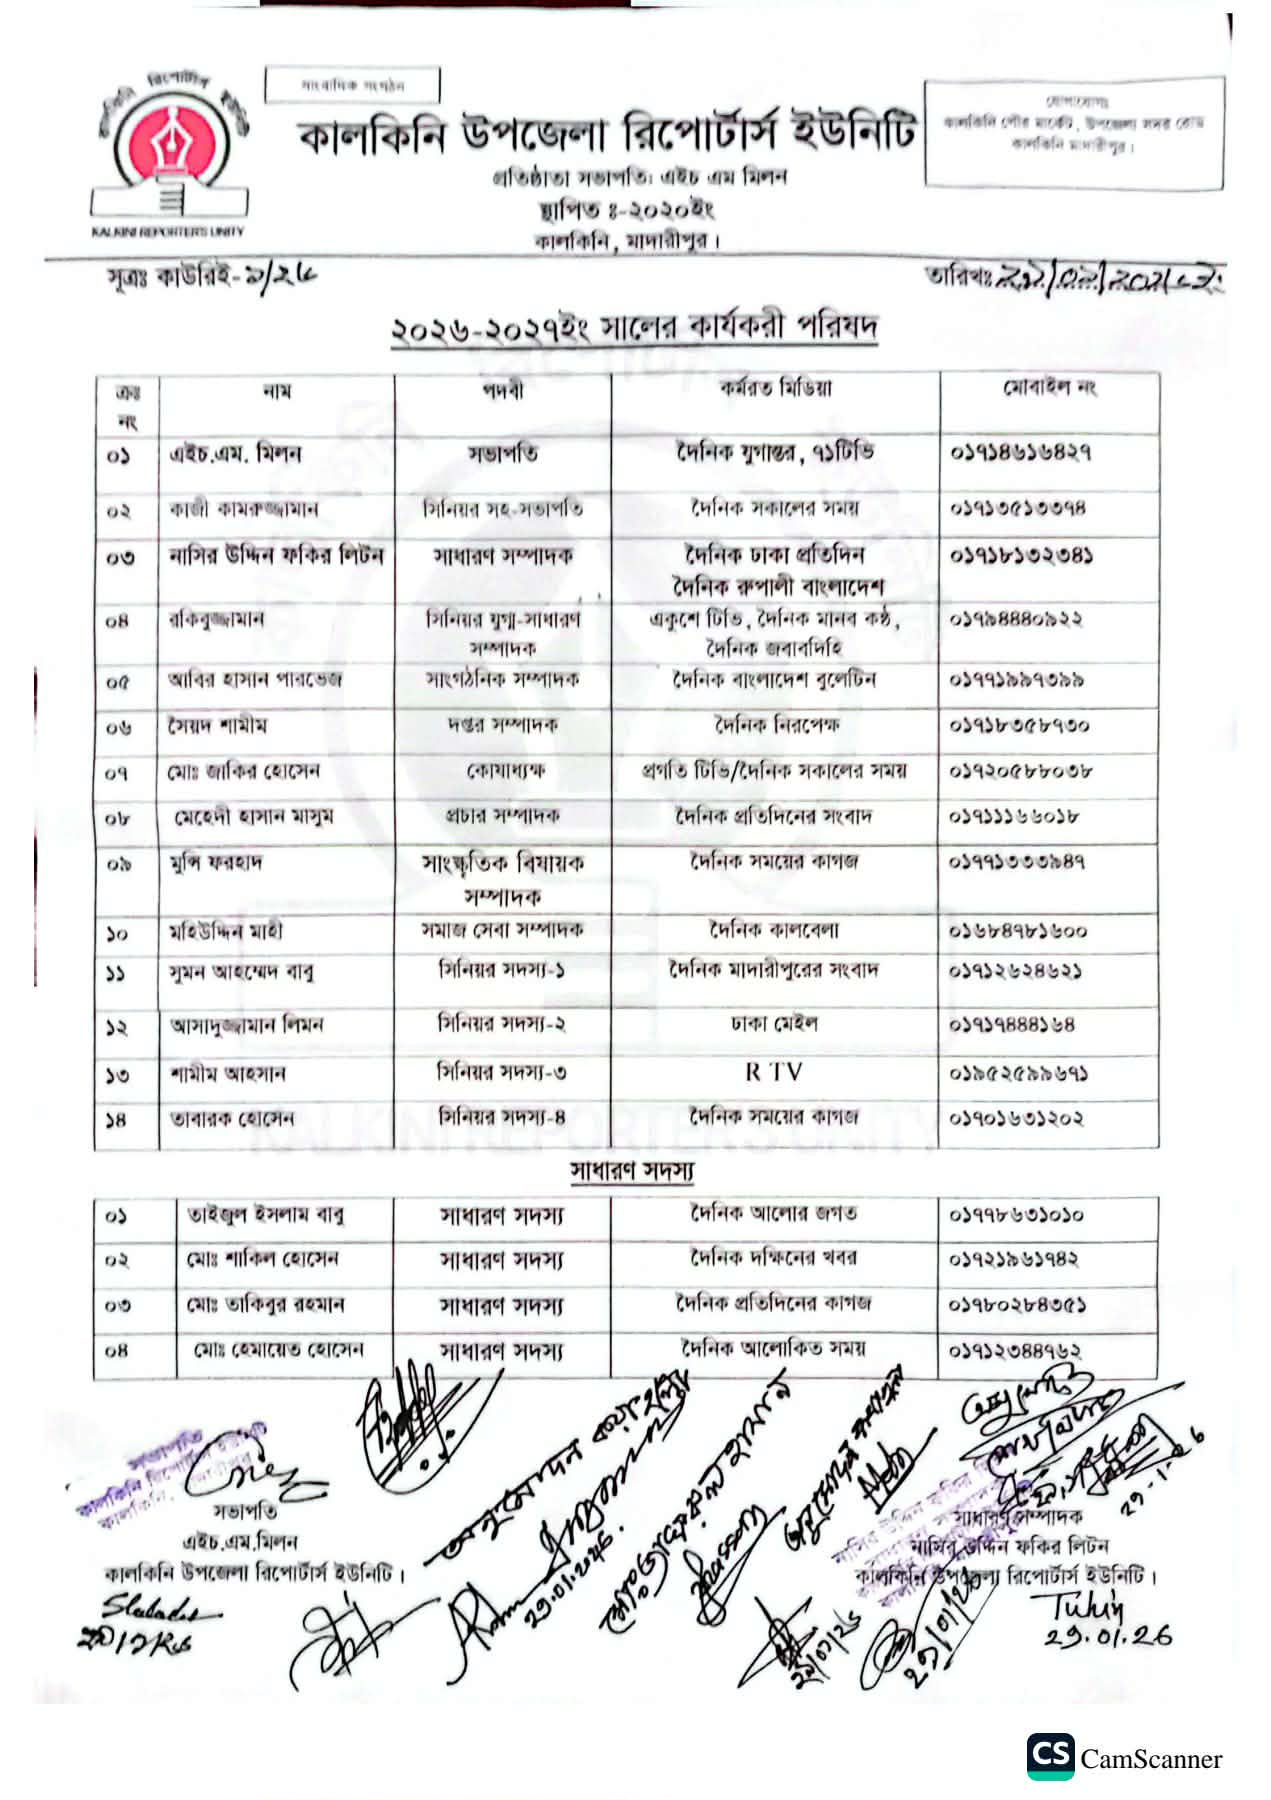 কালকিনি রিপোর্টার্স ইউনিটি
KALKINI REPORTER'S UNITY
সাংবাদিক সংগঠন
কালকিনি উপজেলা রিপোর্টার্স ইউনিটি
প্রতিষ্ঠাতা সভাপতিঃ এইচ এম মিলন
স্থাপিত ঃ-২০২০ইং
কালকিনি, মাদারীপুর।
যোগাযোগঃ
কালকিনি পৌর মার্কেট, উপজেলা সদর রোড
কালকিনি মাদারীপুর।
সূত্রঃ কাউরিই-৯/২৬
তারিখঃ
২০২৬-২০২৭ইং সালের কার্যকরী পরিষদ
ক্রঃ নং নাম পদবী কর্মরত মিডিয়া মোবাইল নং
০১ এইচ.এম. মিলন সভাপতি দৈনিক যুগান্তর, ৭১টিভি ০১৭১৪৬১৬৪২৭
০২ কাজী কামরুজ্জামান সিনিয়র সহ-সভাপতি দৈনিক সকালের সময় ০১৭১৩৫১৩৩৭৪
০৩ নাসির উদ্দিন ফকির লিটন সাধারণ সম্পাদক দৈনিক ঢাকা প্রতিদিন ০১৭১৮১৩২৩৪১
দৈনিক রুপালী বাংলাদেশ
০৪ রকিবুজ্জামান সিনিয়র যুগ্ম-সাধারণ একুশে টিভি, দৈনিক মানব কন্ঠ, ০১৭৯৪৪৪০৯২২
সম্পাদক দৈনিক জবাবদিহি
০৫ আবির হাসান পারভেজ সাংগঠনিক সম্পাদক দৈনিক বাংলাদেশ বুলেটিন ০১৭৭১৯৯৭৩৯৯
০৬ সৈয়দ শামীম দপ্তর সম্পাদক দৈনিক নিরপেক্ষ ০১৭১৮৩৫৮৭৩০
০৭ মোঃ জাকির হোসেন কোষাধ্যক্ষ প্রগতি টিভি/দৈনিক সকালের সময় ০১৭২০৫৮৮০৩৮
০৮ মেহেদী হাসান মাসুম প্রচার সম্পাদক দৈনিক প্রতিদিনের সংবাদ ০১৭১১১৬৬০১৮
০৯ মুন্সি ফরহাদ সাংস্কৃতিক বিষায়ক দৈনিক সময়ের কাগজ ০১৭৭১৩৩৩৯৪৭
সম্পাদক
১০ মহিউদ্দিন মাহী সমাজ সেবা সম্পাদক দৈনিক কালবেলা ০১৬৮৪৭৮১৬০০
১১ সুমন আহম্মেদ বাবু সিনিয়র সদস্য-১ দৈনিক মাদারীপুরের সংবাদ ০১৭১২৬২৪৬২১
১২ আসাদুজ্জামান লিমন সিনিয়র সদস্য-২ ঢাকা মেইল ০১৭১৭৪৪৪১৬৪
১৩ শামীম আহসান সিনিয়র সদস্য-৩ R TV ০১৯৫২৫৯৯৬৭১
১৪ তাবারক হোসেন সিনিয়র সদস্য-৪ দৈনিক সময়ের কাগজ ০১৭০১৬৩১২০২
KALKINI REPORTER'S UNITY
সাধারণ সদস্য
০১ তাইজুল ইসলাম বাবু সাধারণ সদস্য দৈনিক আলোর জগত ০১৭৭৮৬৩১০১০
০২ মোঃ শাকিল হোসেন সাধারণ সদস্য দৈনিক দক্ষিনের খবর ০১৭২১৯৬১৭৪২
০৩ মোঃ তাকিবুর রহমান সাধারণ সদস্য দৈনিক প্রতিদিনের কাগজ ০১৭৮০২৮৪৩৫১
০৪ মোঃ হেমায়েত হোসেন সাধারণ সদস্য দৈনিক আলোকিত সময় ০১৭১২৩৪৪৭৬২
সভাপতি
কালকিনি রিপোর্টার্স ইউনিটি
অনুমোদন করা হল
সভাপতি
এইচ.এম.মিলন
কালকিনি উপজেলা রিপোর্টার্স ইউনিটি।
সাধারণ সম্পাদক
নাসির উদ্দিন ফকির লিটন
কালকিনি উপজেলা রিপোর্টার্স ইউনিটি।
29.01.2026
Tuhin
29.01.26
CS CamScanner